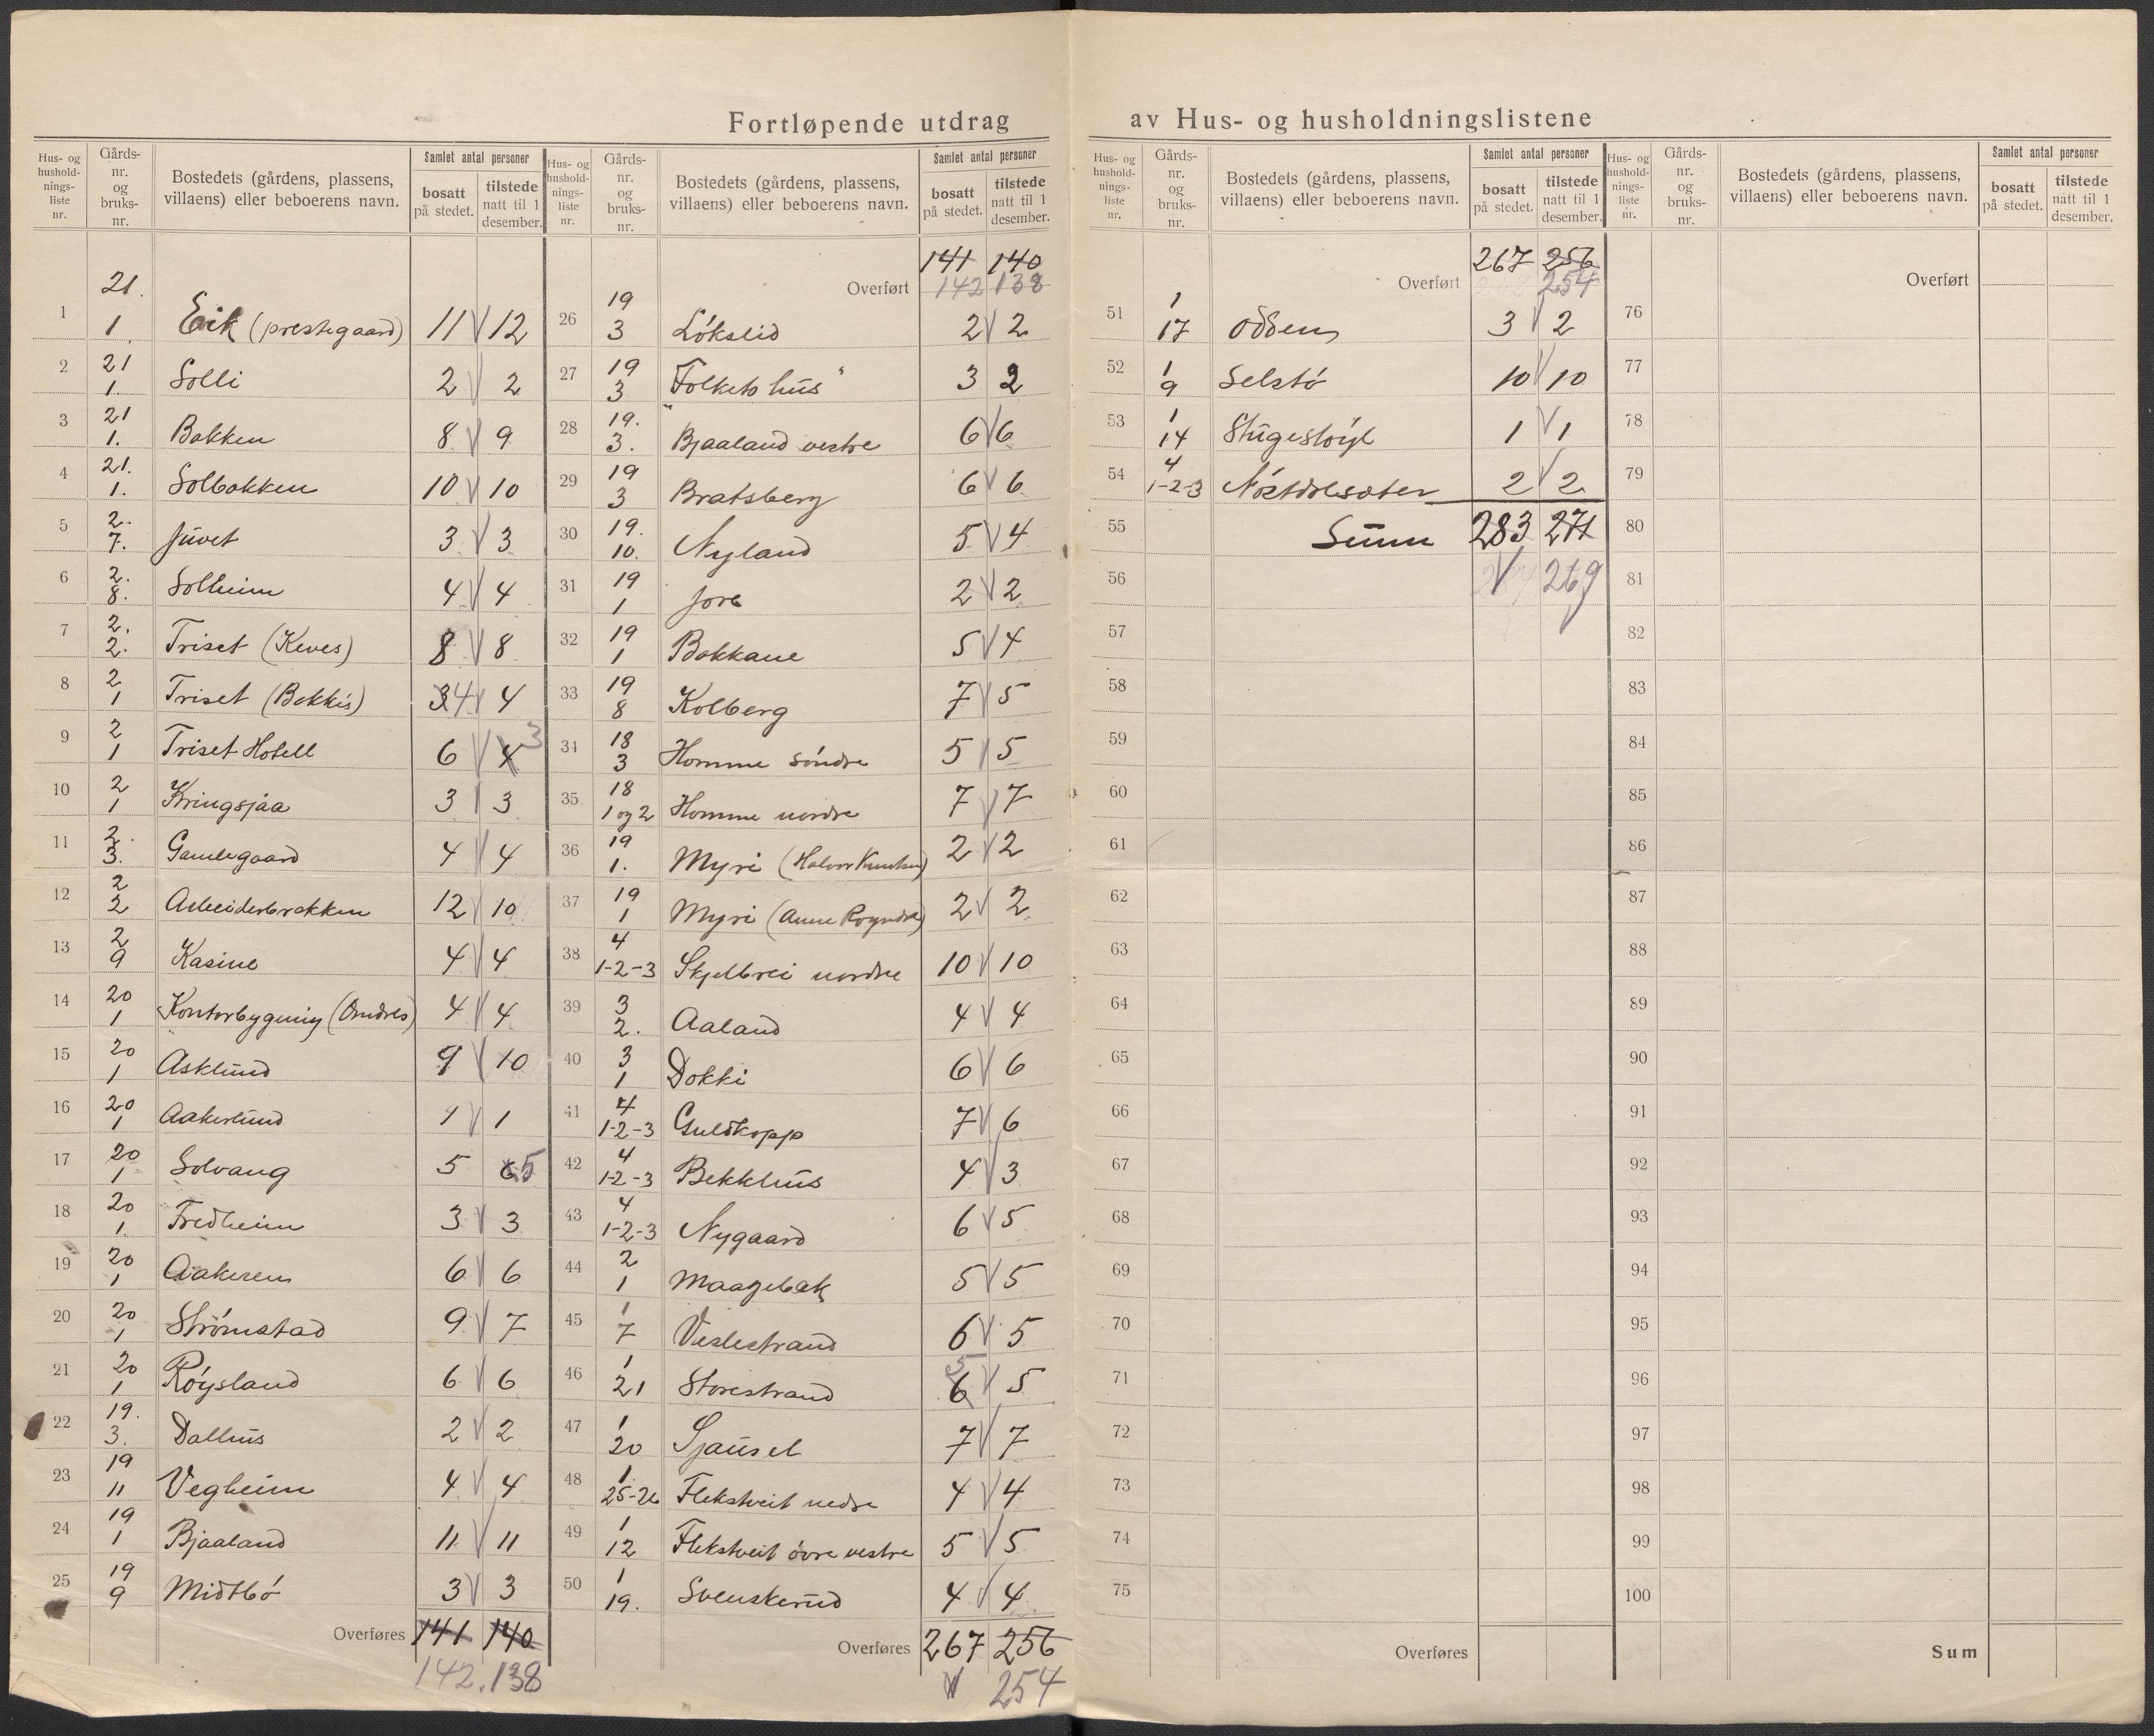 Fortløpende utdrag av Hus- og husholdningslistene
Hus- og hushold- nings- liste nr. | Gårds- nr. og bruks- nr. | Bostedets (gårdens, plassens, villaens) eller beboerens navn. | Samlet antal personer | bosatt på stedet. | tilstede natt til 1 desember.
1 | 21. 1 | Eik (prestegaard) | 11 | 12
2 | 21 1. | Solli | 2 | 2
3 | 21 1. | Bakken | 8 | 9
4 | 21. 1. | Solbakken | 10 | 10
5 | 2. 7. | Juvet | 3 | 3
6 | 2. 8. | Solheim | 4 | 4
7 | 2. 2. | Triset (Keves) | 8 | 8
8 | 2 1 | Triset (Bekkis) | 3 4 | 4
9 | 2 1 | Triset Hotell | 6 | 4 3
10 | 2 1 | Kringsjaa | 3 | 3
11 | 2. 3. | Gamlegaard | 4 | 4
12 | 2 2 | Arbeiderbrakken | 12 | 10
13 | 2 9 | Kasine | 4 | 4
14 | 20 1 | Kontorbygning | 4 | 4
15 | 20 1 | Asklund | 9 | 10
16 | 20 1 | Aakerlund | 1 | 1
17 | 20 1 | Solvang | 5 | 6 5
18 | 20 1. | Fredheim | 3 | 3
19 | 20 1 | Aakeren | 6 | 6
20 | 20 1 | Strømstad | 9 | 7
21 | 20 1 | Røysland | 6 | 6
22 | 19. 3. | Dalhus | 2 | 2
23 | 19 11 | Vegheim | 4 | 4
24 | 19 1 | Bjaaland | 11 | 11
25 | 19 9 | Midtbø | 3 | 3
Overføres 141 140
142. 138
Hus- og hushold- nings- liste nr. | Gårds- nr. og bruks- nr. | Bostedets (gårdens, plassens, villaens) eller beboerens navn. | Samlet antal personer | bosatt på stedet. | tilstede natt til 1 desember.
141 140
Overført 142 138
26 | 19 3 | Løkslid | 2 | 2
27 | 19 3 | "Folkets hus" | 3 | 2
28 | 19. 3. | Bjaaland vestre | 6 | 6
29 | 19 3 | Bratsberg | 6 | 6
30 | 19. 10. | Nyland | 5 | 4
31 | 19 1 | Jore | 2 | 2
32 | 19 1 | Bakkane | 5 | 4
33 | 19 8 | Kolberg | 7 | 5
34 | 18 3 | Homme søndre | 5 | 5
35 | 18 1 og 2 | Homme nordre | 7 | 7
36 | 19 1. | Myri (Halvor Knutsen) | 2 | 2
37 | 19 1 | Myri (Anne) | 2 | 2
38 | 4 1-2-3 | Skjelbrei nordre | 10 | 10
39 | 3 2. | Aaland | 4 | 4
40 | 3 1 | Dokki | 6 | 6
41 | 4 1-2-3 | Guldkopp | 7 | 6
42 | 4 1-2-3 | Bekkhus | 4 | 3
43 | 4 1-2-3 | Nygaard | 6 | 5
44 | 2 1 | Maagebak | 5 | 5
45 | 1 7 | Veslestrand | 6 | 5
46 | 1 21 | Storestrand | 6 5 | 5
47 | 1 20 | Sjausel | 7 | 7
48 | 1. 25-26 | Flekstveit nedre | 4 | 4
49 | 1 12 | Flekstveit øvre vestre | 5 | 5
50 | 1 19. | Svenskerud | 4 | 4
Overføres 267 256
254
Hus- og hushold- nings- liste nr. | Gårds- nr. og bruks- nr. | Bostedets (gårdens, plassens, villaens) eller beboerens navn. | Samlet antal personer | bosatt på stedet. | tilstede natt til 1 desember.
267 256
Overført 254
51 | 1 17 | Odden | 3 | 2
52 | 1 9 | Selstø | 10 | 10
53 | 1 14 | Stugesløyl | 1 | 1
54 | 4 1-2-3 | Nøstdalsæter | 2 | 2
55 | Sum | 283 | 271
56 | 269
57
58
59
60
61
62
63
64
65
66
67
68
69
70
71
72
73
74
75
Overføres
Hus- og hushold- nings- liste nr. | Gårds- nr. og bruks- nr. | Bostedets (gårdens, plassens, villaens) eller beboerens navn. | Samlet antal personer | bosatt på stedet. | tilstede natt til 1 desember.
Overført
76
77
78
79
80
81
82
83
84
85
86
87
88
89
90
91
92
93
94
95
96
97
98
99
100
Sum